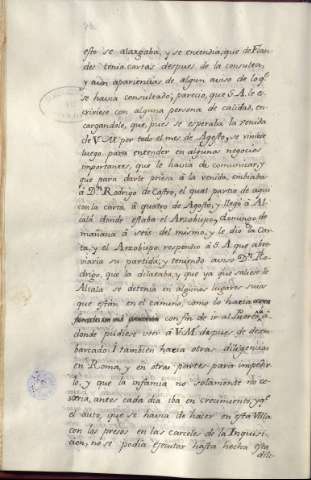 esto se alargaba, y se entendia, que de Flan
des tenia cartas despues de la consulta,
y aun apariencias de algun aviso de lo q.e
se havia consultado, parecio, que S.A. le es
criviese con alguna persona de calidad, en
cargandole, que, pues se esperaba la venida
de V.M. por todo el mes de Agosto, se viniese
luego para entender en algunos negocios
importantes, que le havia de comunicar, y
que para darle priesa à la venida, embiaba
à D.n Rodrigo de Castro, el qual partio de aqui
con la carta à quatro de Agosto, y llegò à Al
calà donde estaba el Arzobispo, domingo de
mañana à seis del mismo, y le dio la car
ta, y el Arzobispo respondio à S.A. que abre
viaria su partida; y teniendo aviso D.n Ro
drigo, que la dilataba, y que ya que saliese de
Alcala se detenia en algunos lugares suios
que estàn en el camino, como lo hacia
con fin de ir al
donde pudiese veer à V.M. despues de desem
barcado: I tambien hacia otras diligencias
en Roma, y en otras partes para impedir
lo, y que la infamia no solamente no ce
saria, antes cada dia iba en crecimiento, y q.e
el auto, que se havia de hacer en esta Villa
con los presos en las carceles de la Inquisi
cion, no se podia executar hasta hecha esta
dili